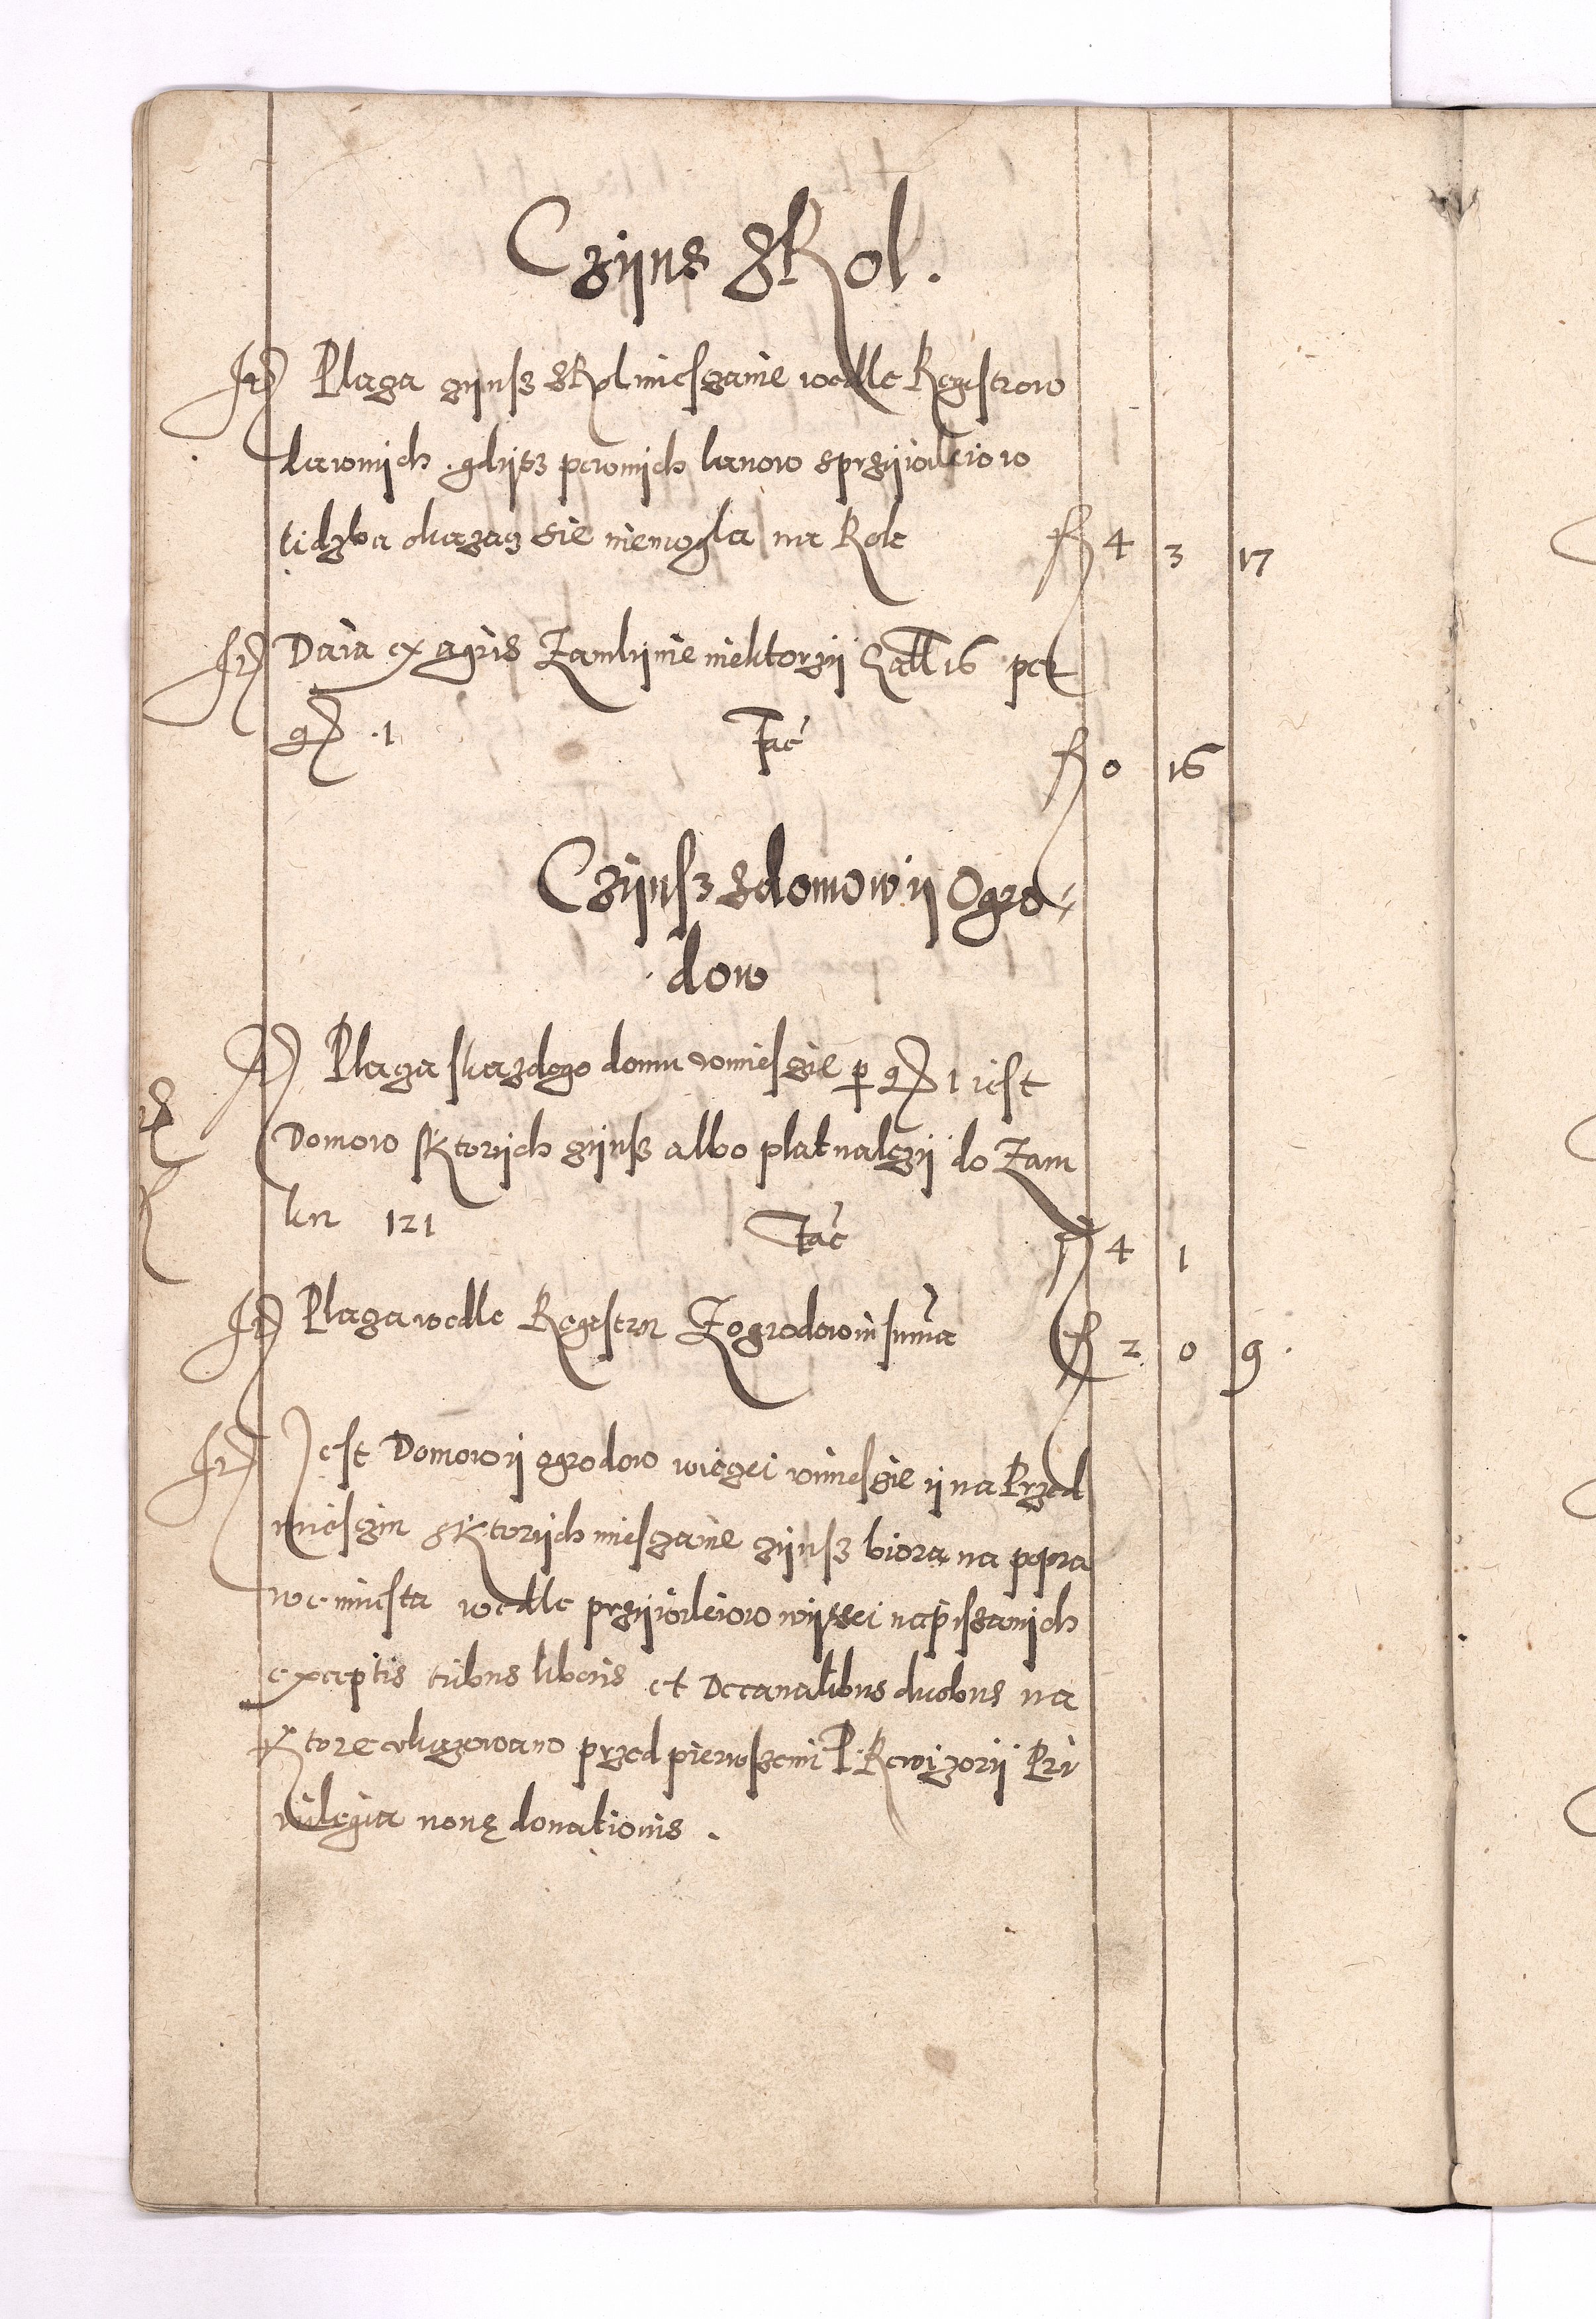 Czÿns z Rol.
It Placza czÿnsz z Rol miesczanie wedlie Regestrow
dawnÿch. gdÿsz pewnÿch lanow s przÿwileiow
liczba okazacz sie niemogla na Role fl 4 3 17
It Daia ex agris Zamkÿ nie niektorzÿ per
gr .1 Fac fl 0 16
Czÿnsz z domow ÿ Ogro-
dow
It Placza s kazdego domu w miesczie per gr 1 iest
Domow s Ktorÿch czÿnsz albo plat nalezÿ do Zam
ku 121 Fac fl 4 1
It Placza wedlie Regestru Z ogrodow in summa fl 2 0 9.
It Jest Domow ÿ ogrodow wieczei w miesczie ÿ na Przed
miesczin z Ktorÿch miesczanie czÿnsz biora na popra
we miasta wedlie przÿwileiow wÿssei napisanÿch
exceptis tribus liberis et Decanalibus duobus na
Ktore okazowano przed pierwszemi P. Rewizorÿ Pri
vilegia nouę donationis.